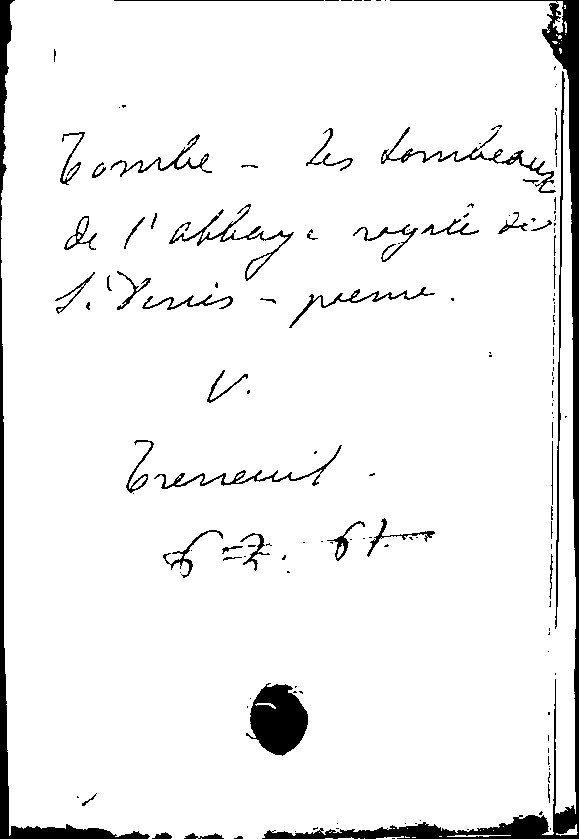 Tombe - Les tombeaux
de l'abbaye royale de
St Denis - poeme.
V.
Treneuil.